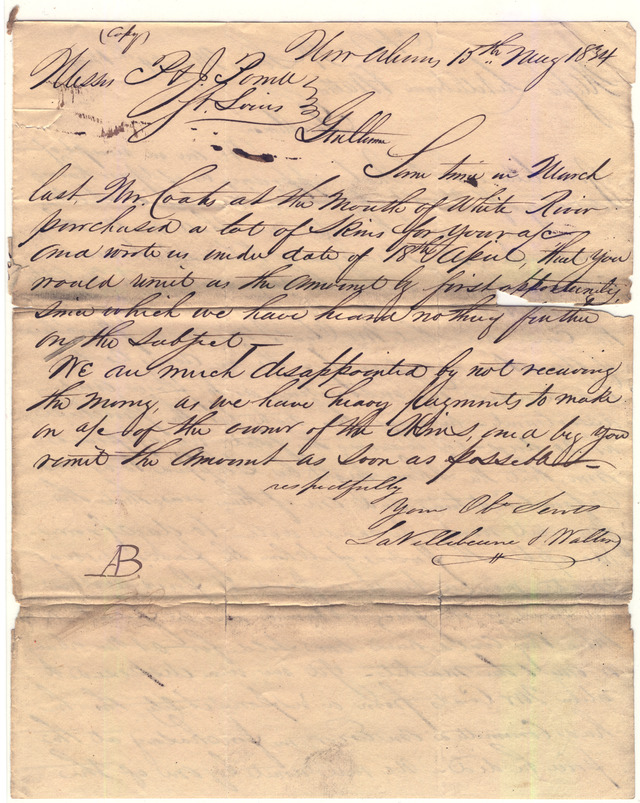 (Copy)
New Orleans 15th May 1834
Messrs P & J. Powell
St. Louis
Gentlemen
Some time in March
last, Mr. Coats at the Mouth of White River
purchased a lot of Skins for your a/c
and wrote us under date of 18th April, that you
would remit us the amount by first opportunity,
since which we have heard nothing further
on the subject —
We are much disappointed by not receiving
the money, as we have heavy payments to make
on a/c of the owner of the Skins, and beg you
remit the amount as soon as possible —
respectfully
Your Obt Servts
LaVillebeuvre & Walton
AB